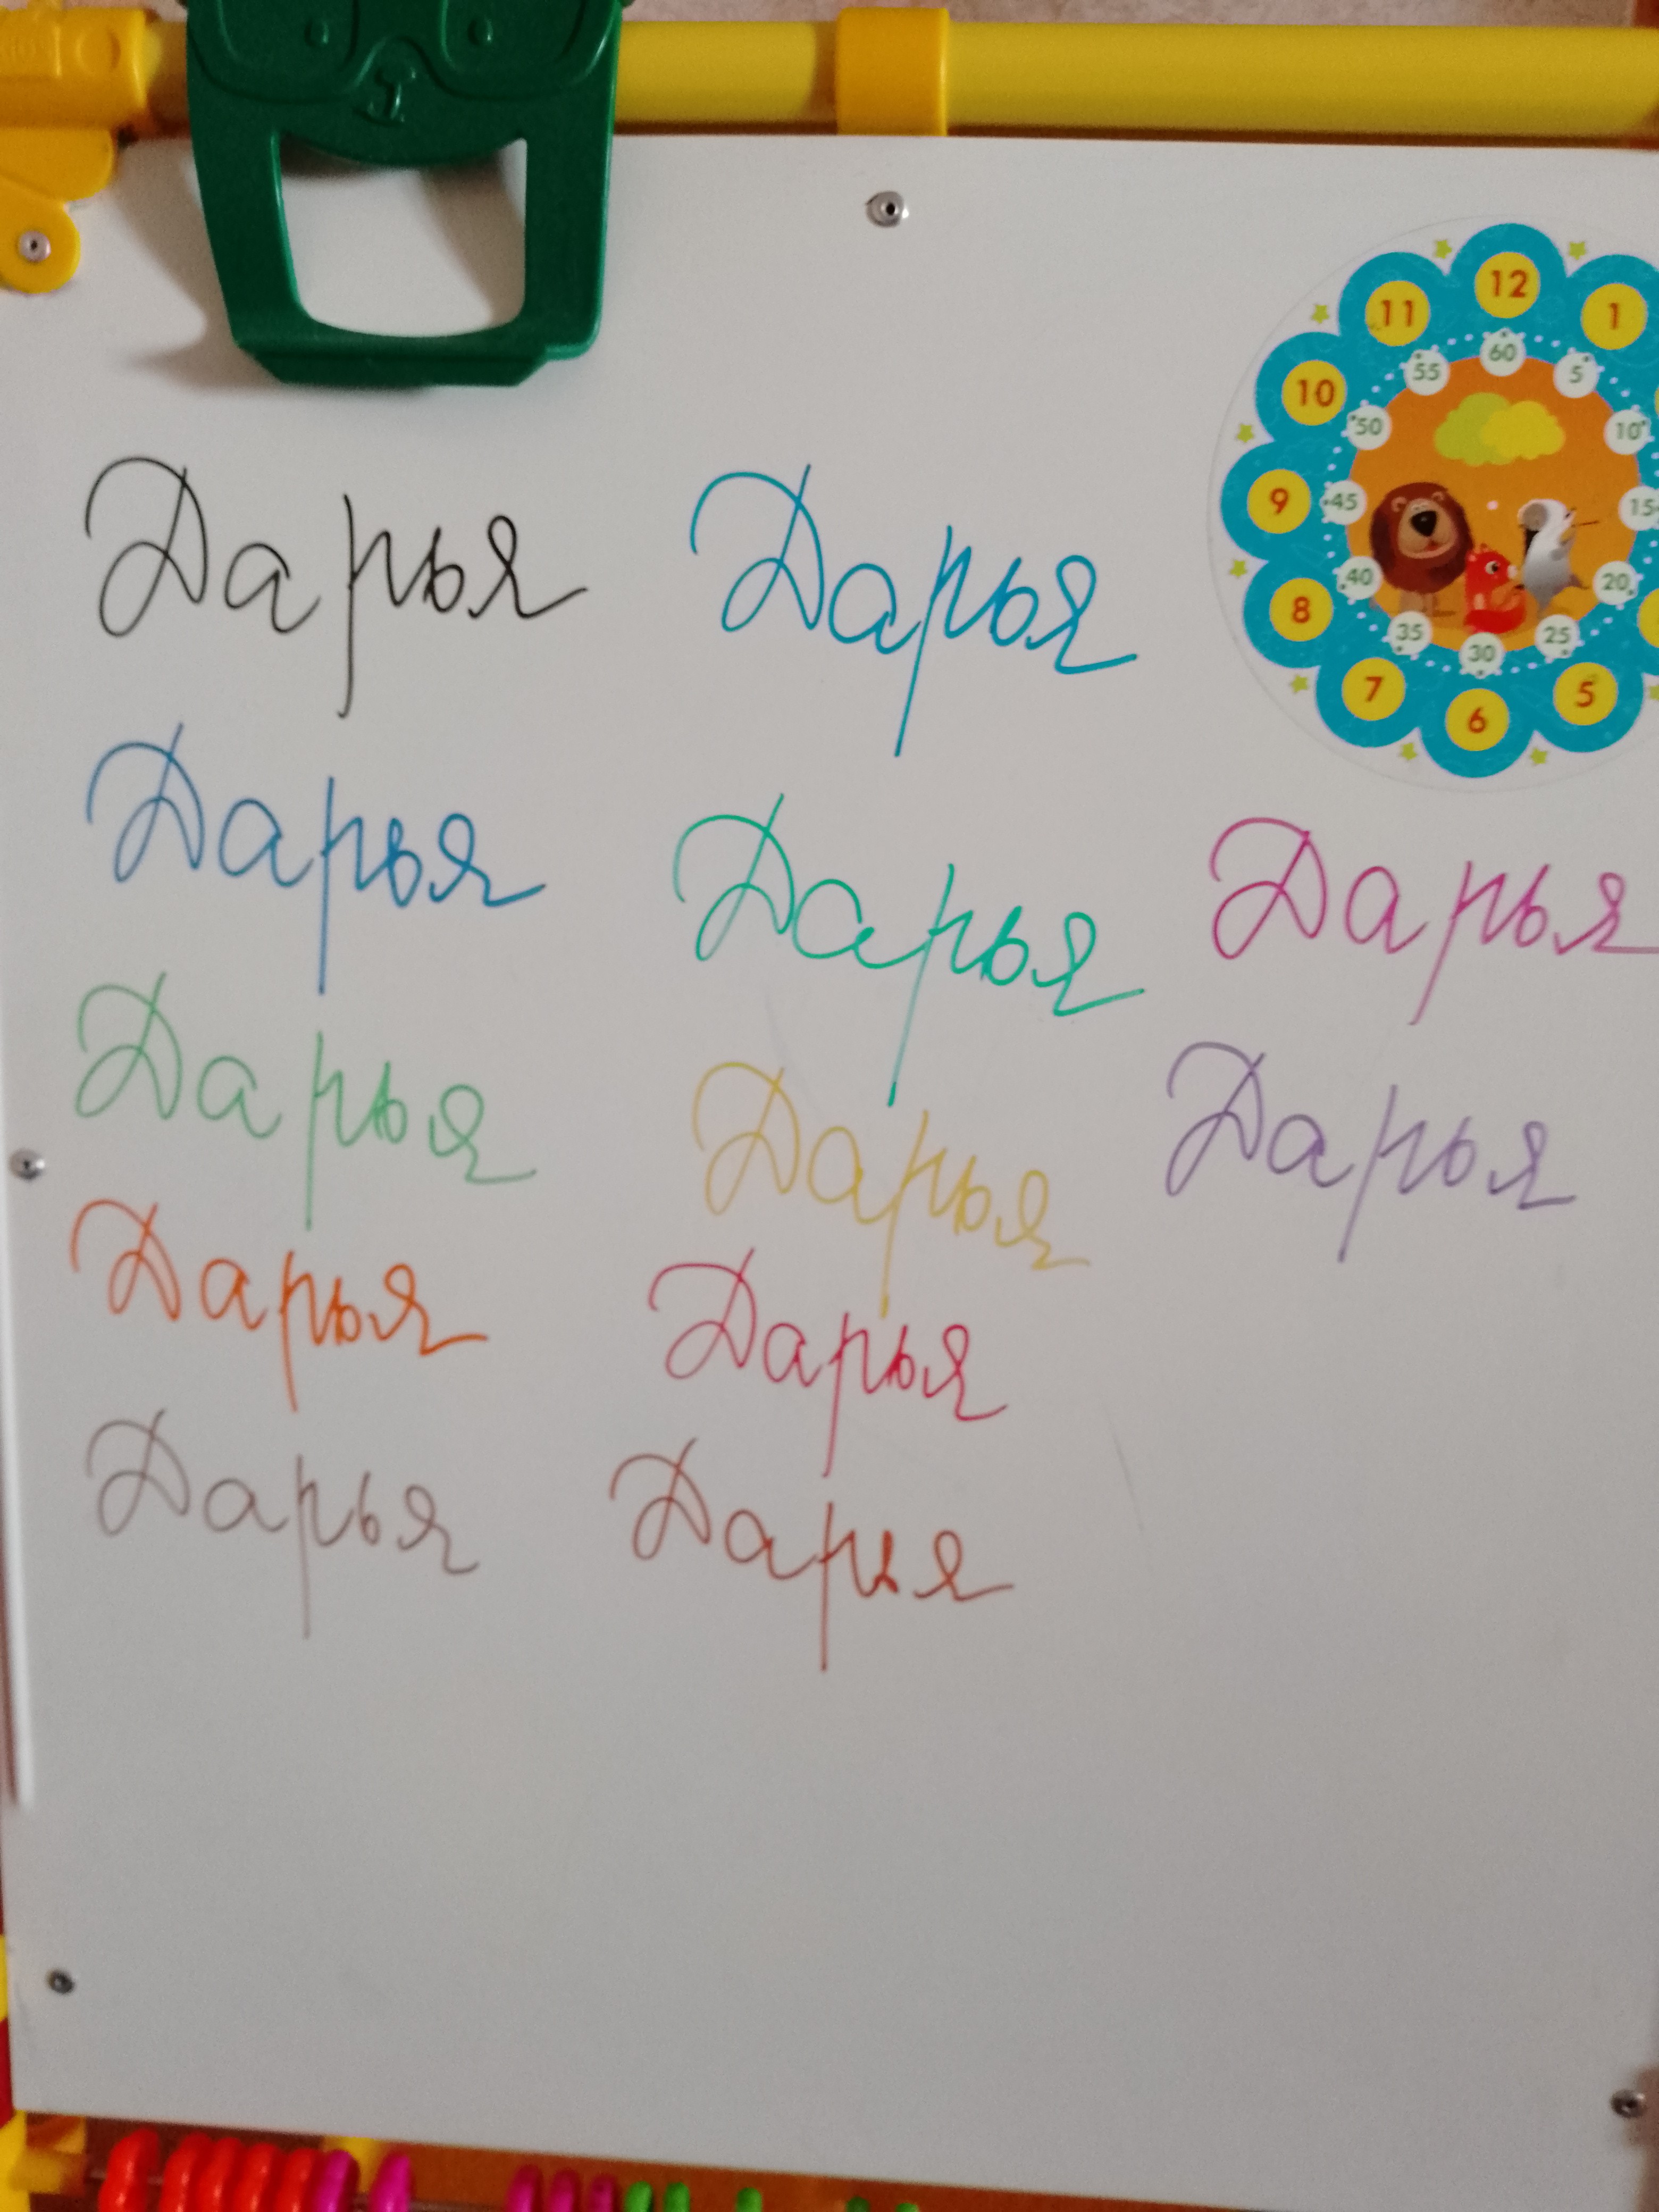 12
11 1
60
55 5
10
50 10
9 45 15
40 20
8
35 25
30
7 5
6
Дарья Дарья
Дарья Дарья Дарья
Дарья Дарья Дарья
Дарья Дарья
Дарья Дарья